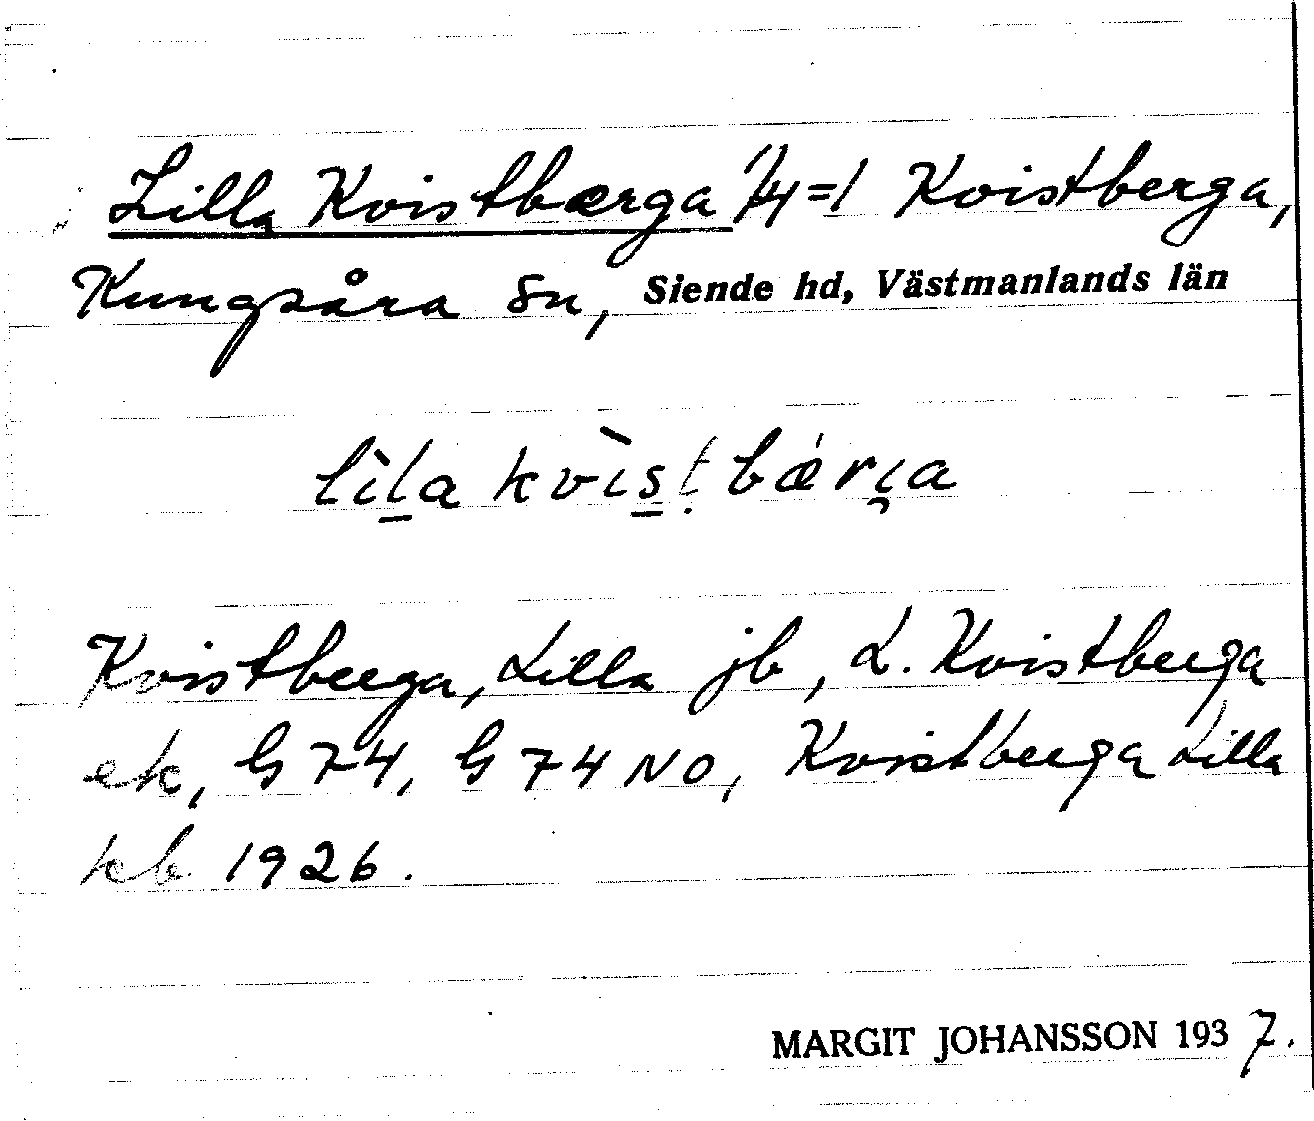 Lilla Kvistbærga 1/4=1 Kvistberga,
Kungsåra sn, Siende hd, Västmanlands län
lìl̠a kvìs̠ṭbǽrı̨a
Kvistberga, Lilla jb, L. Kvistberga
ek, G 74, G 74 NO, Kvistberga Lilla
kb 1926.
MARGIT JOHANSSON 1937.